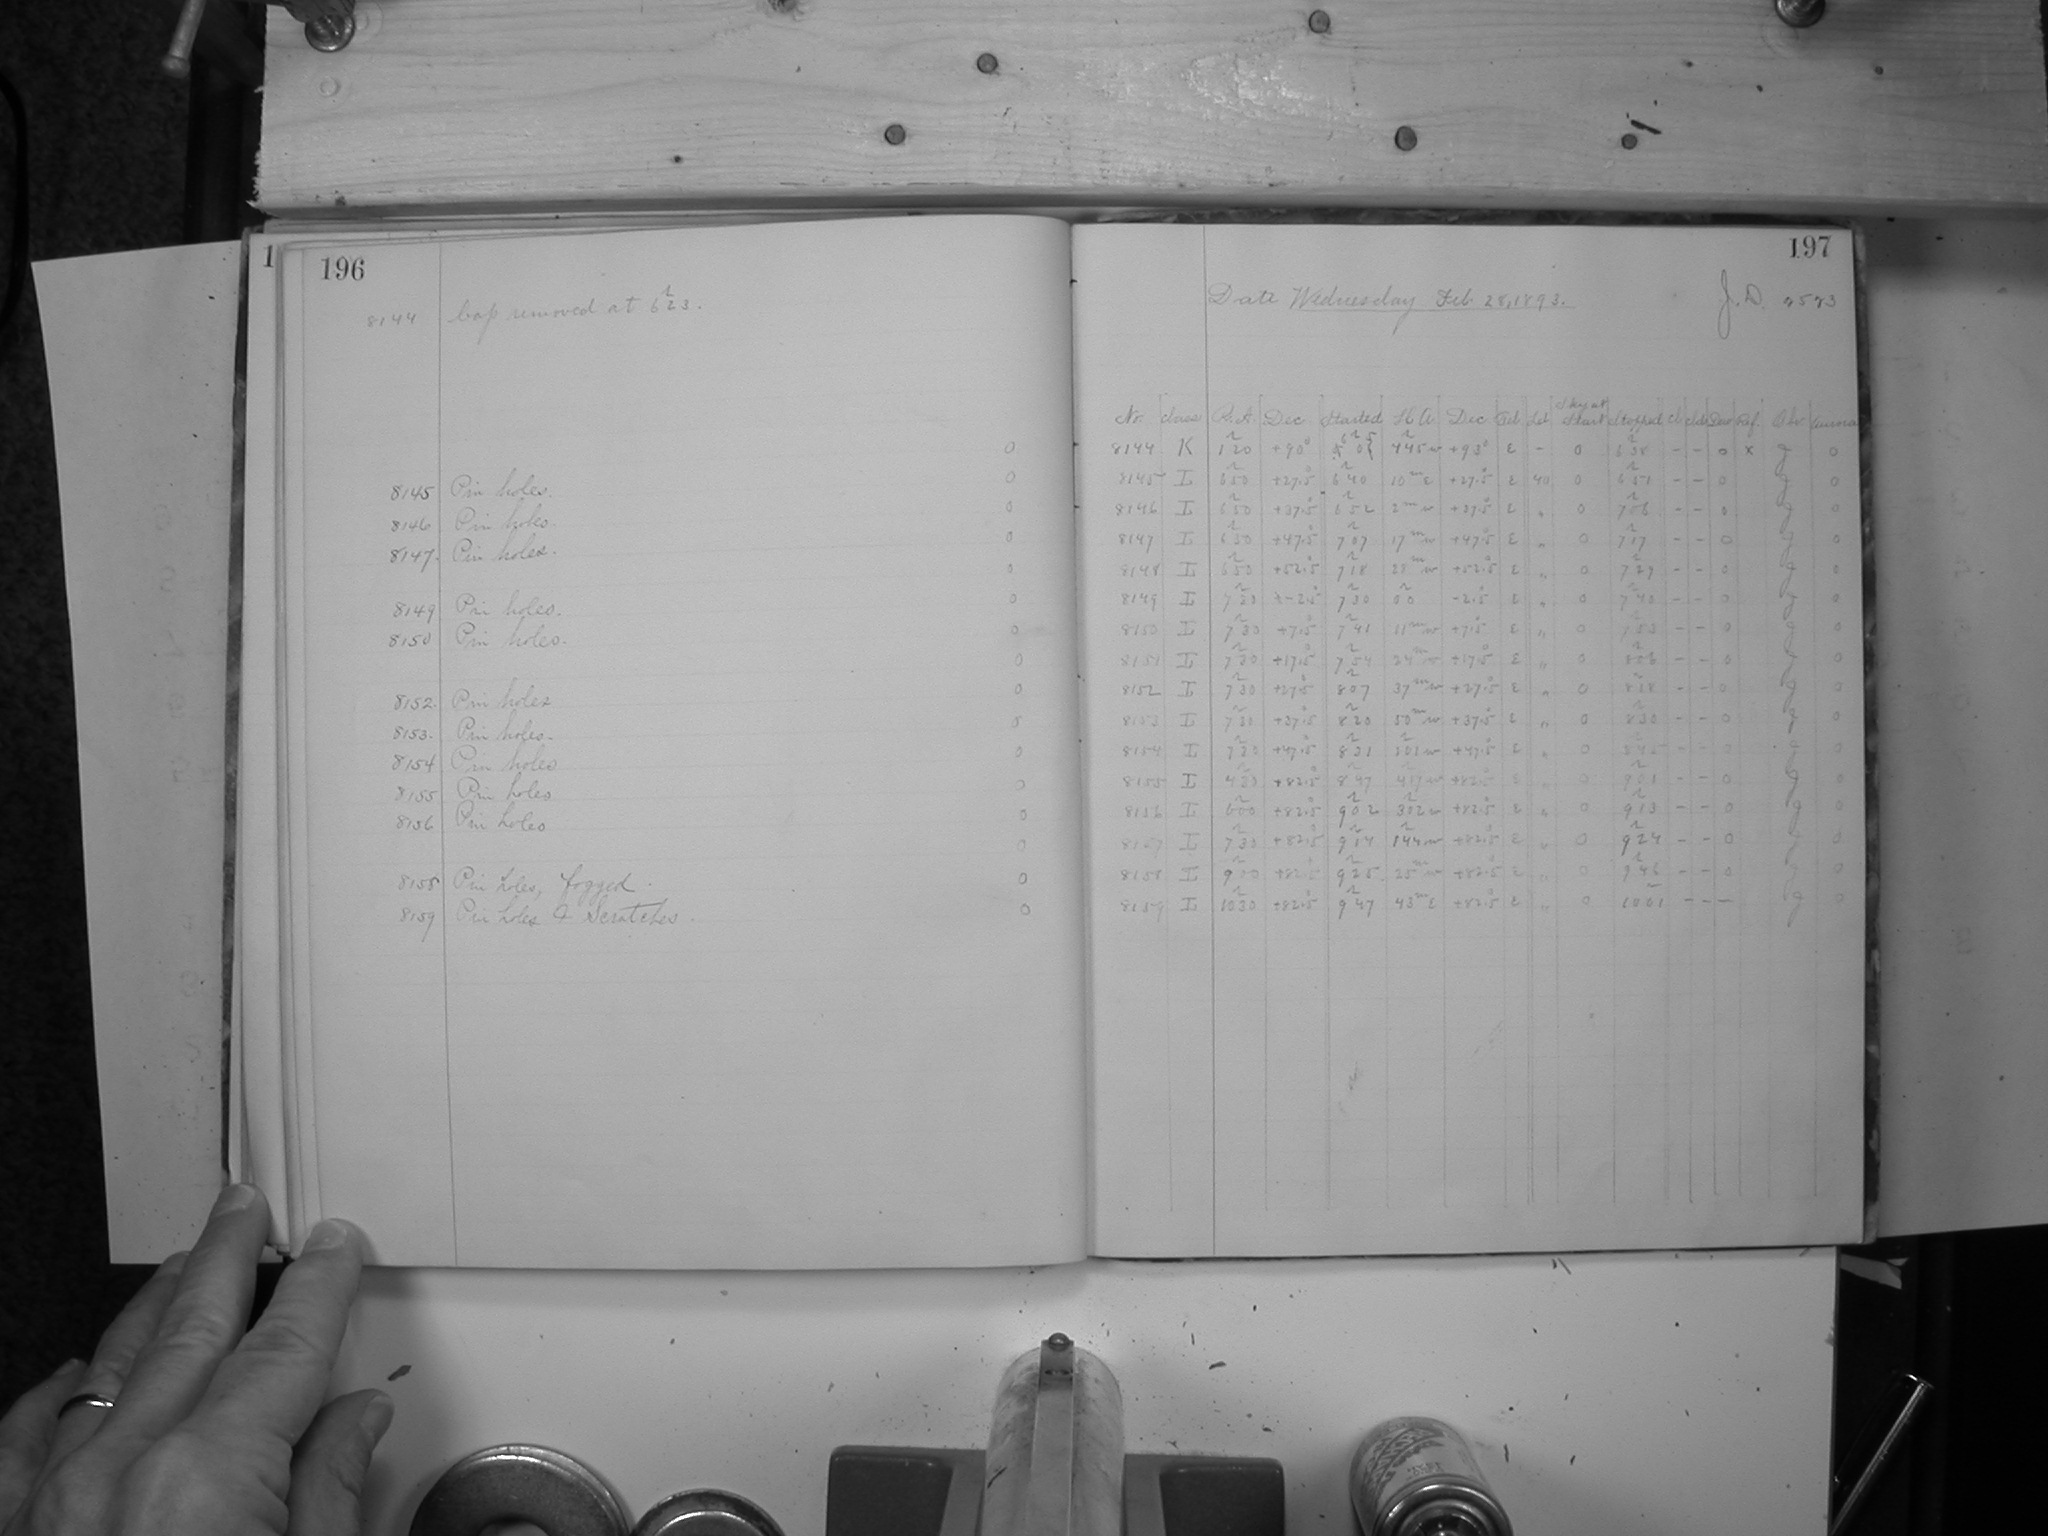 1
196
8144 Cap removed at 6h23.
0
0
8145 Pin holes.
0
8146 Pin holes.
0
8147. Pin holes.
0
0
8149 Pin holes.
0
8150 Pin holes.
0
0
8152. Pin holes
8153. Pin holes.
8154 Pin holes
0
8155 Pin holes
0
8156 Pin holes
0
8158 Pin holes, fogged.
0
8159 Pin holes & Scratches.
0
197
Date Wednesday Feb 28, 1893.
J.D.
No. Class R.A. Dec Started H A Dec Start Stopped Ref. Obs. Aurora
8144 K 1h20 +90° 445w E - 0 638 - - 0 x g 0
8145 I 650 +27.5 640 10m E +27.5 E 40 0 651 - - 0 g 0
8146 I 650 +37.5 652 2m w +37.5 E " 0 706 - - 0 g 0
8147 I 650 +47.5 707 17m w +47.5 E " 0 717 - - 0 g 0
8148 I 650 +52.5 718 28m w +52.5 E " 0 729 - - 0 g 0
8149 I 730 -2.5 730 00 -2.5 E " 0 740 - - 0 g 0
8150 I 730 +7.5 741 11m w +7.5 E " 0 753 - - 0 g 0
8151 I 730 +17.5 754 24m w +17.5 E " 0 806 - - 0 g 0
8152 I 730 +27.5 807 37m w +27.5 E " 0 818 - - 0 g 0
8153 I 730 +37.5 820 50m w +37.5 E " 0 830 - - 0 g 0
8154 I 730 +47.5 831 101w +47.5 E " 0 - - 0 g 0
8155 I 430 +82.5 847 417w +82.5 E " 0 901 - - 0 g 0
8156 I 600 +82.5 902 302w +82.5 E " 0 913 - - 0 g 0
8157 I 730 +82.5 914 144w +82.5 E " 0 924 - - 0 0
8158 I 900 +82.5 925 25m w +82.5 E " 0 946 - - 0 0
8159 I 1030 +82.5 947 43m E +82.5 E " 0 1001 - - - g 0